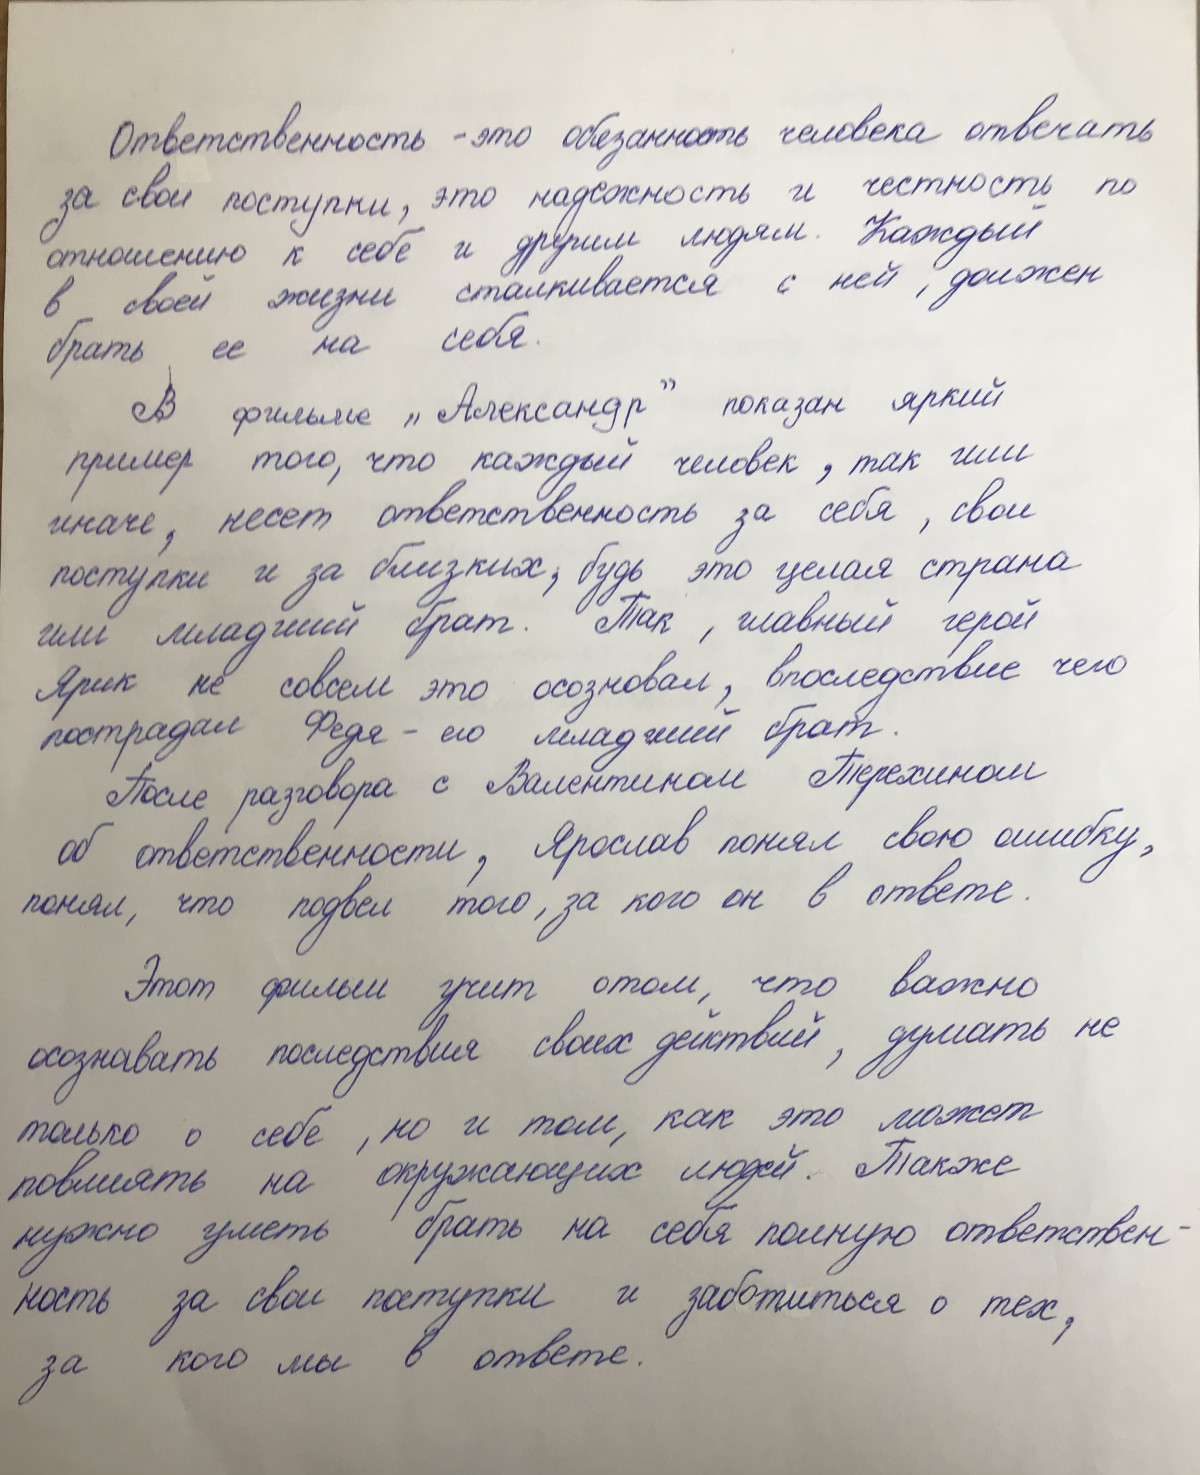 Ответственность - это обезанность человека отвечать
за свои поступки, это надежность и честность по
отношению к себе и другим людям. Каждый
в своей жизни сталкивается с ней, должен
брать ее на себя.
В фильме „Александр” показан яркий
пример того, что каждый человек, так или
иначе, несет ответственность за себя, свои
поступки и за близких, будь это целая страна
или младший брат. Так, главный герой
Ярик не совсем это осозновал, впоследствие чего
пострадал Федя - его младший брат.
После разговора с Валентином Терехином
об ответственности, Ярослав понял свою ошибку,
понял, что подвел того, за кого он в ответе.
Этот фильм учит отом, что важно
осознавать последствия своих действий, думать не
только о себе, но и том, как это может
повлиять на окружающих людей. Также
нужно уметь брать на себя полную ответствен-
ность за свои поступки и заботиться о тех,
за кого мы в ответе.